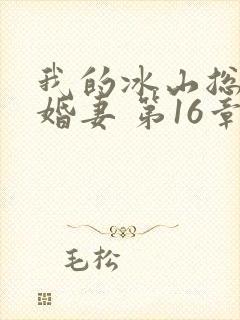 我的冰山总
婚妻 第16章
毛松